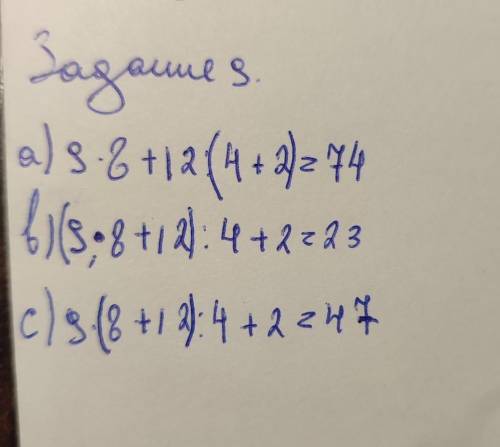 Задание 9.
a) 9·8+12:(4+2)=74
b) (9·8+12):4+2=23
c) 9·(8+12):4+2=47